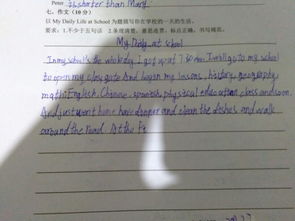 Peter is shorter than Mary.
七、作文（10分）
以 My Daily Life at School 为题描写你在学校的一天的生活。
要求：1.不少于五句话 2.条理清楚，意思连贯，标点正确，书写规范。
My Daily at school
In my school's the whole day. I got up at 7:30 am. I will go to my school
to open my class gate And began my lessons, history, geography
math English, Chinese, spanish, physical education class and soon.
And just went home have dinner and clean the dishes and walk
around the road. At the